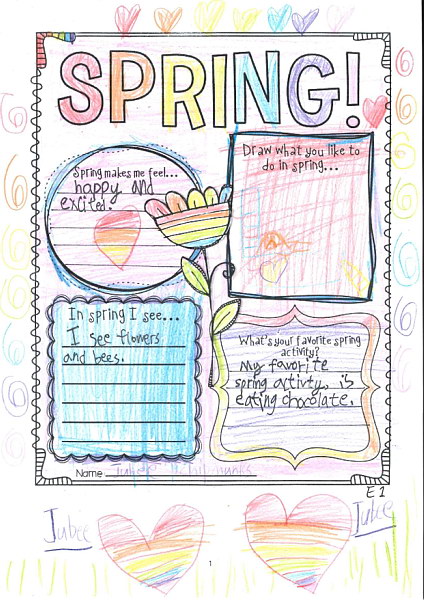 SPRING!
Spring makes me feel...
happy and
excited.
Draw what you like to
do in spring...
In spring I see...
I see flowers
and bees.
What's your favorite spring
activity?
My favorite
spring activty, is
eating chocolate.
Name
E 1
Jubee
Jubee
1